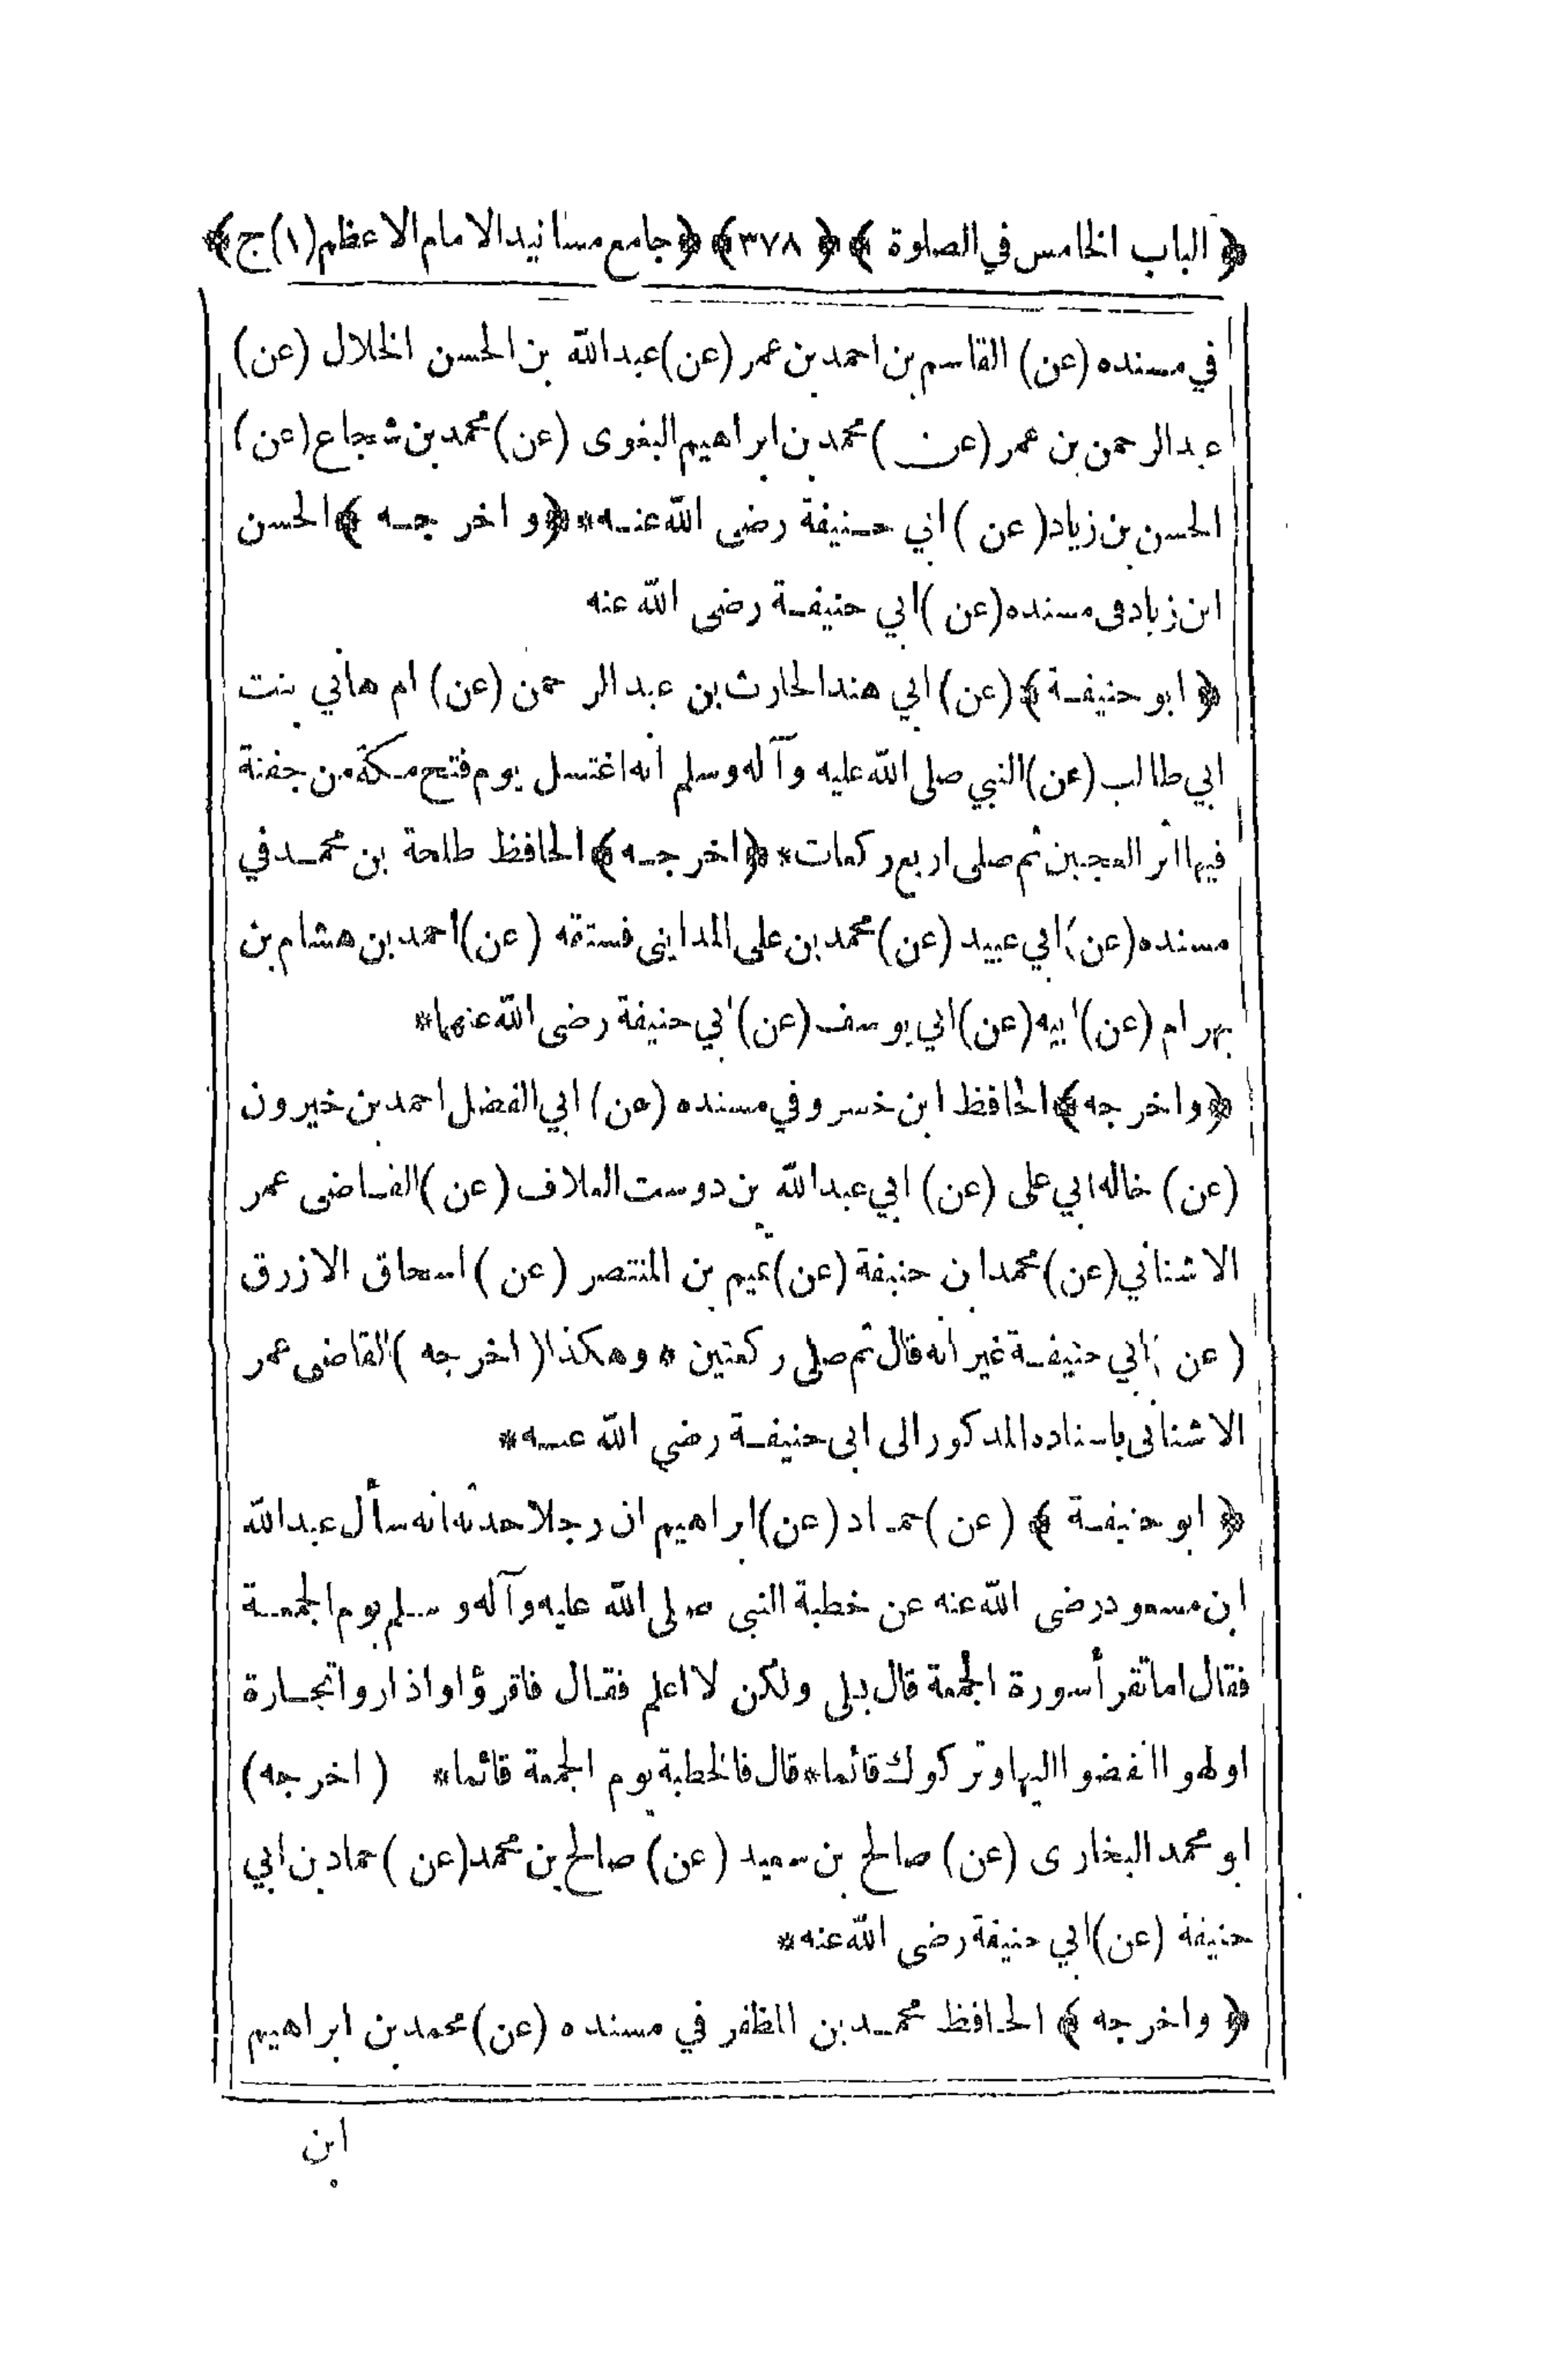 ﴿ الباب الخامس في الصلوة ﴾ ﴿ ٣٧٨ ﴾ ﴿ جامع مسانيد الامام الاعظم (١) ج ﴾
في مسنده (عن) القاسم بن احمد بن عمر (عن) عبد الله بن الحسن الخلال (عن)
عبد الرحمن بن عمر (عن) محمد بن ابراهيم البغوى (عن) محمد بن شجاع (عن)
الحسن بن زياد (عن) ابي حنيفة رضى الله عنه * ﴿ و اخرجه ﴾ الحسن
ابن زياد فى مسنده (عن) ابي حنيفة رضى الله عنه
﴿ ابو حنيفة ﴾ (عن) ابي هند الحارث بن عبد الرحمن (عن) ام هاني بنت
ابي طالب (عن) النبي صلى الله عليه وآله وسلم انه اغتسل يوم فتح مكة من جفنة
فيها اثر العجين ثم صلى اربع ركعات * ﴿ اخرجه ﴾ الحافظ طلحة بن محمد في
مسنده (عن) ابي عبيد (عن) محمد بن على المداينى فستقه (عن) احمد بن هشام بن
بهرام (عن) ابيه (عن) ابي يوسف (عن) ابي حنيفة رضى الله عنهما *
﴿ واخرجه ﴾ الحافظ ابن خسرو في مسنده (عن) ابي الفضل احمد بن خيرون
(عن) خاله ابي على (عن) ابي عبد الله بن دوست العلاف (عن) القاضى عمر
الاشناني (عن) محمد ان حنيفة (عن) تميم بن المنتصر (عن) اسحاق الازرق
(عن) ابي حنيفة غير انه قال ثم صلى ركعتين * وهكذا (اخرجه) القاضى عمر
الاشنانى باسناده المذكور الى ابى حنيفة رضي الله عنه *
﴿ ابو حنيفة ﴾ (عن) حماد (عن) ابراهيم ان رجلا حدثه انه سأل عبد الله
ابن مسعود رضى الله عنه عن خطبة النبي صلى الله عليه وآله و سلم يوم الجمعة
فقال اما تقرأ سورة الجمعة قال بلى ولكن لا اعلم فقال فاقرؤا واذا روا تجارة
او لهوا انفضوا اليها وتركوك قائما * قال فالخطبة يوم الجمعة قائما * (اخرجه)
ابو محمد البخارى (عن) صالح بن سعيد (عن) صالح بن محمد (عن) حماد بن ابي
حنيفة (عن) ابي حنيفة رضى الله عنه *
﴿ واخرجه ﴾ الحافظ محمد بن المظفر في مسنده (عن) محمد بن ابراهيم
ابن